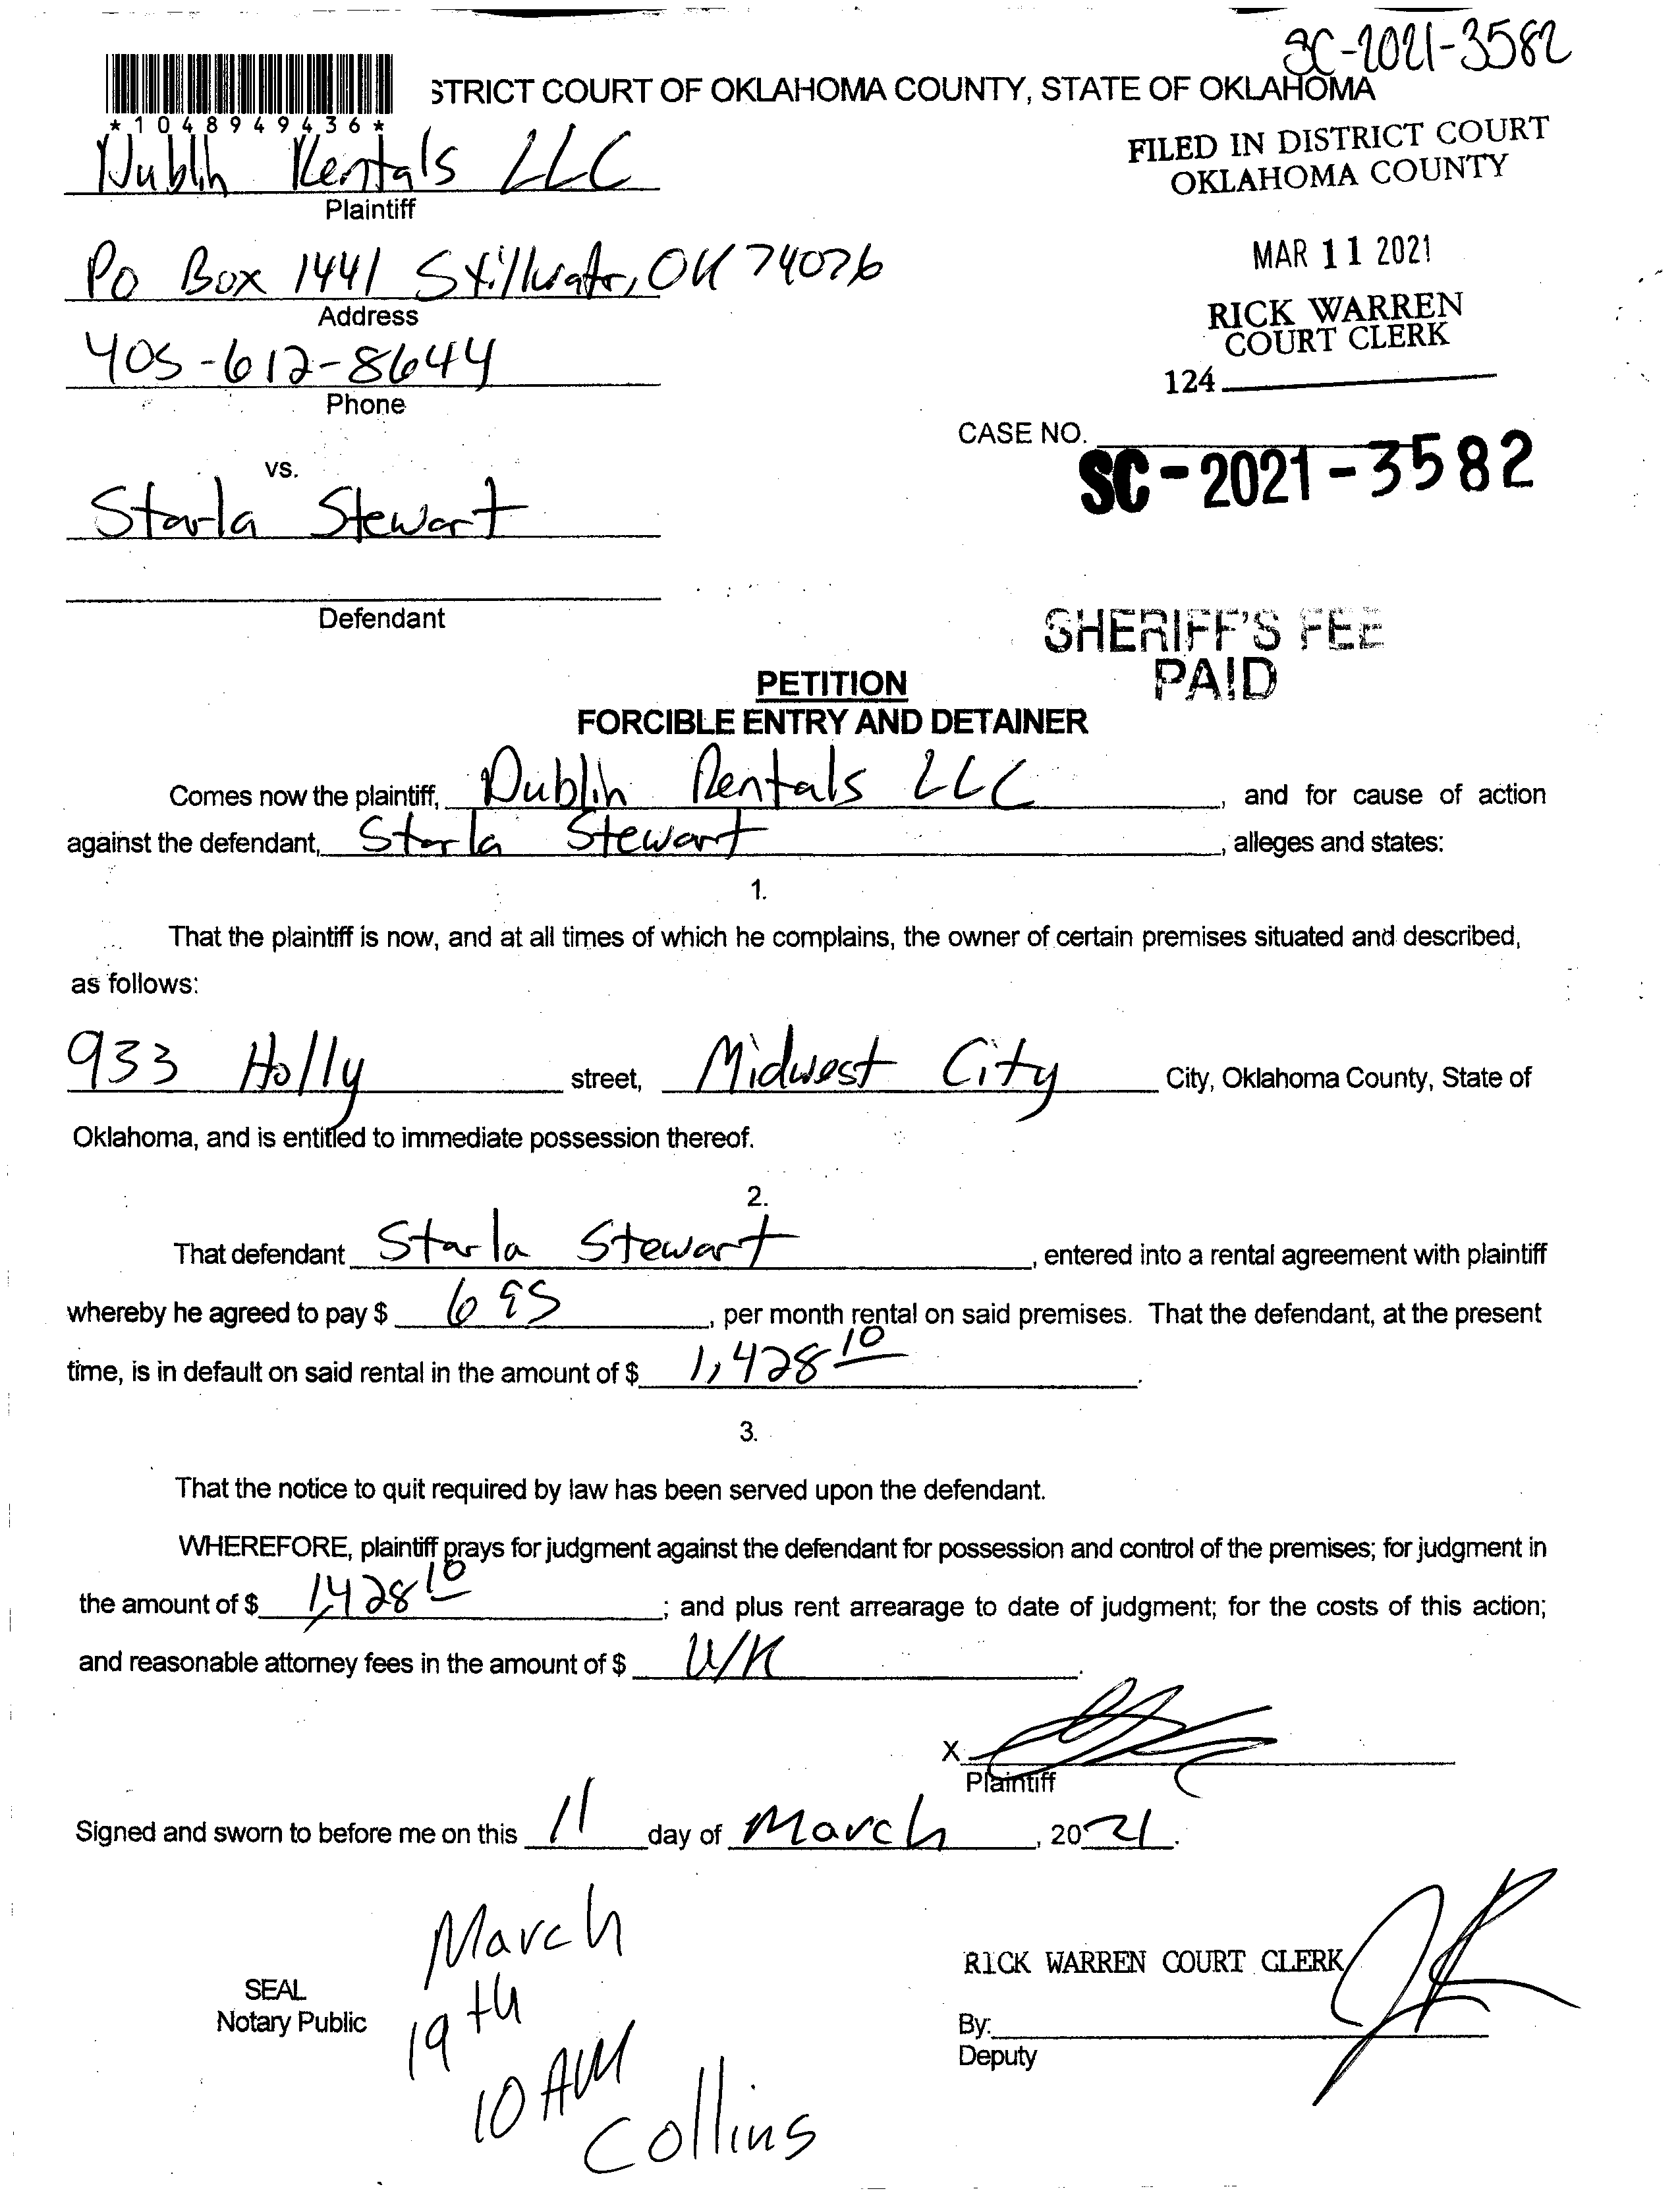 SC-2021-3582
STRICT COURT OF OKLAHOMA COUNTY, STATE OF OKLAHOMA
*1048949436*
Dublin Rentals LLC
Plaintiff
FILED IN DISTRICT COURT
OKLAHOMA COUNTY
PO Box 1441 Stillwatr, OK 74076
Address
MAR 11 2021
RICK WARREN
COURT CLERK
405-612-8644
Phone
124
CASE NO.
SC-2021-3582
vs.
Starla Stewart
Defendant
SHERIFF'S FEE
PAID
PETITION
FORCIBLE ENTRY AND DETAINER
Comes now the plaintiff, Dublin Rentals LLC, and for cause of action
against the defendant, Starla Stewart, alleges and states:
1.
That the plaintiff is now, and at all times of which he complains, the owner of certain premises situated and described,
as follows:
933 Holly street, Midwest City City, Oklahoma County, State of
Oklahoma, and is entitled to immediate possession thereof.
2.
That defendant Starla Stewart, entered into a rental agreement with plaintiff
whereby he agreed to pay $ 695, per month rental on said premises. That the defendant, at the present
time, is in default on said rental in the amount of $ 1,428 10.
3.
That the notice to quit required by law has been served upon the defendant.
WHEREFORE, plaintiff prays for judgment against the defendant for possession and control of the premises; for judgment in
the amount of $ 1,428 10; and plus rent arrearage to date of judgment; for the costs of this action;
and reasonable attorney fees in the amount of $ U/K.
X
Plaintiff
Signed and sworn to before me on this 11 day of March, 2021.
March
19th
10 AM
Collins
SEAL
Notary Public
RICK WARREN COURT CLERK
By:
Deputy